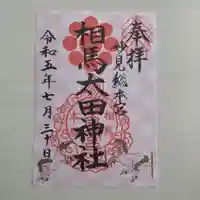 奉拝
妙見総本宮
相馬太田神社
令和五年七月三十日